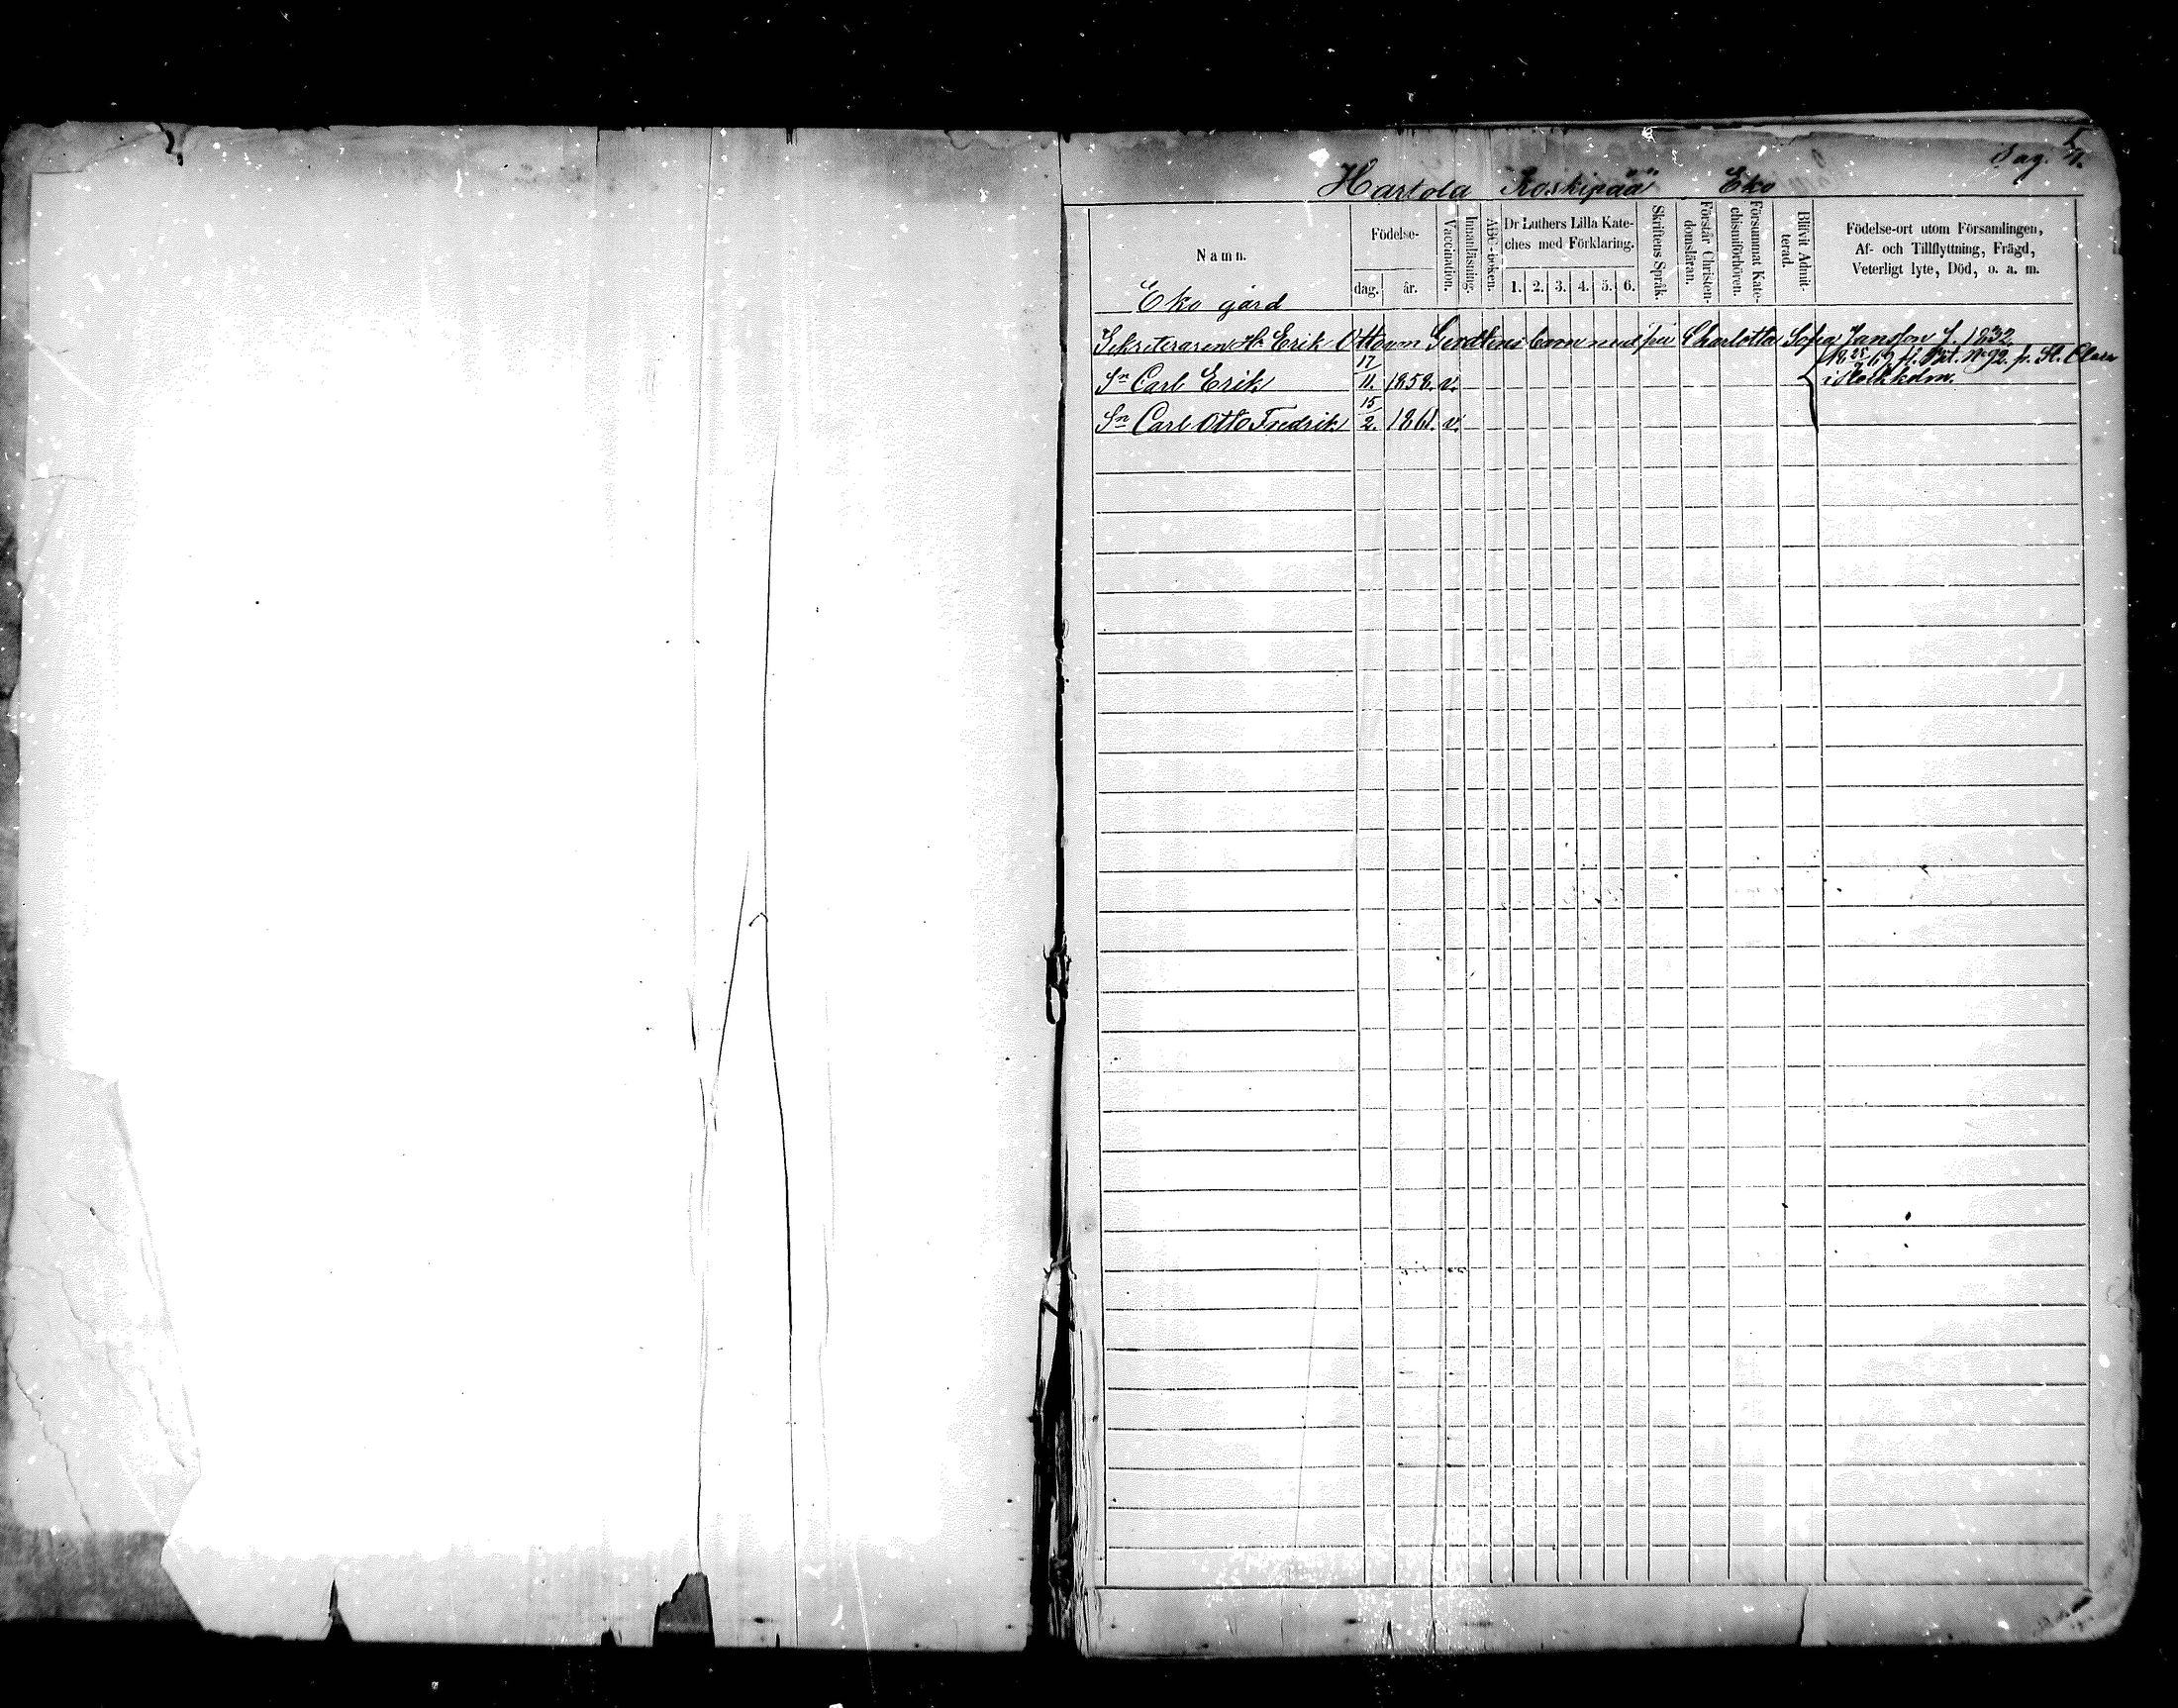 Pag. 1.
Hartola Koskipää Eko
Namn.
Födelse-
dag. år.
Vaccination.
Innanläsning.
ABC-boken.
Dr Luthers Lilla Kate-
ches med Förklaring.
1. 2. 3. 4. 5. 6.
Skriftens Språk.
Förstår Christen-
domsläran.
Försummat Kate-
chismiförhören.
Blifvit Admit-
terad.
Födelse-ort utom Församlingen,
Af- och Tillflyttning, Frägd,
Veterligt lyte, Död, o. a. m.
Eko gård
Sekreteraren H. Erik Otto von barn med Charlotta Sofia Jansson f. 1832.
Sn Carl Erik 17/11. 1858. v. N:o 92. fr. St. Clara
i Stockholm.
Sn Carl Otto Fredrik 15/2. 1861. v.